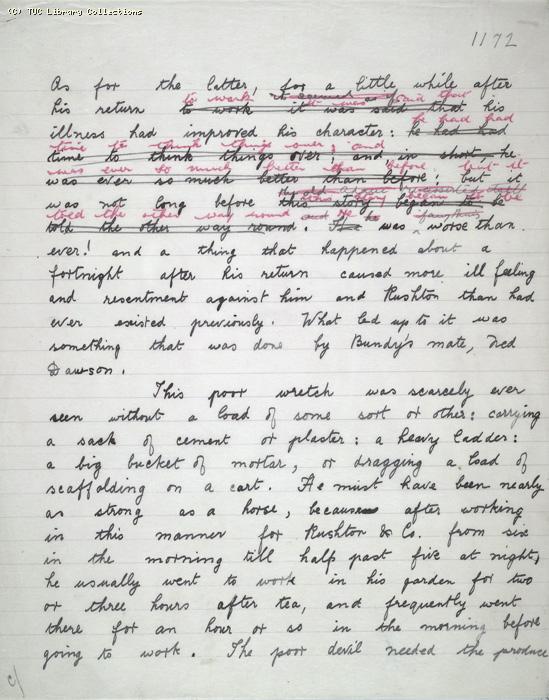 (C) TUC Library Collections
1172
As for the latter, for a little while after
it seemed as if
to work it was said that
his return to work it was said that his
he had had
illness had improved his character: he had had
time to think things over; and
time to think things over; and in short he
was ever so much better than before, but it
was ever so much better than before; but it
this story began to be
was not long before this story began to be
told the other way round
told the other way round. He was worse than
ever! and a thing that happened about a
fortnight after his return caused more ill feeling
and resentment against him and Rushton than had
ever existed previously. What led up to it was
something that was done by Bundy's mate, Ned
Dawson.
This poor wretch was scarcely ever
seen without a load of some sort or other: carrying
a sack of cement or plaster: a heavy ladder:
a big bucket of mortar, or dragging a load of
scaffolding on a cart. He must have been nearly
as strong as a horse, because after working
in this manner for Rushton & Co. from six
in the morning till half past five at night,
he usually went to work in his garden for two
or three hours after tea, and frequently went
there for an hour or so in the morning before
going to work. The poor devil needed the produce
c/